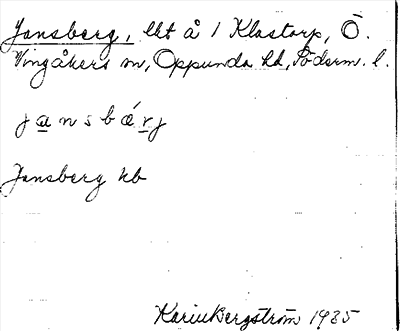 Jansberg, lht å 1 Klastorp, Ö.
Vingåkers sn, Oppunda hd, Söderm. l.
jansbárj
Jansberg kb
Karin Bergström 1935